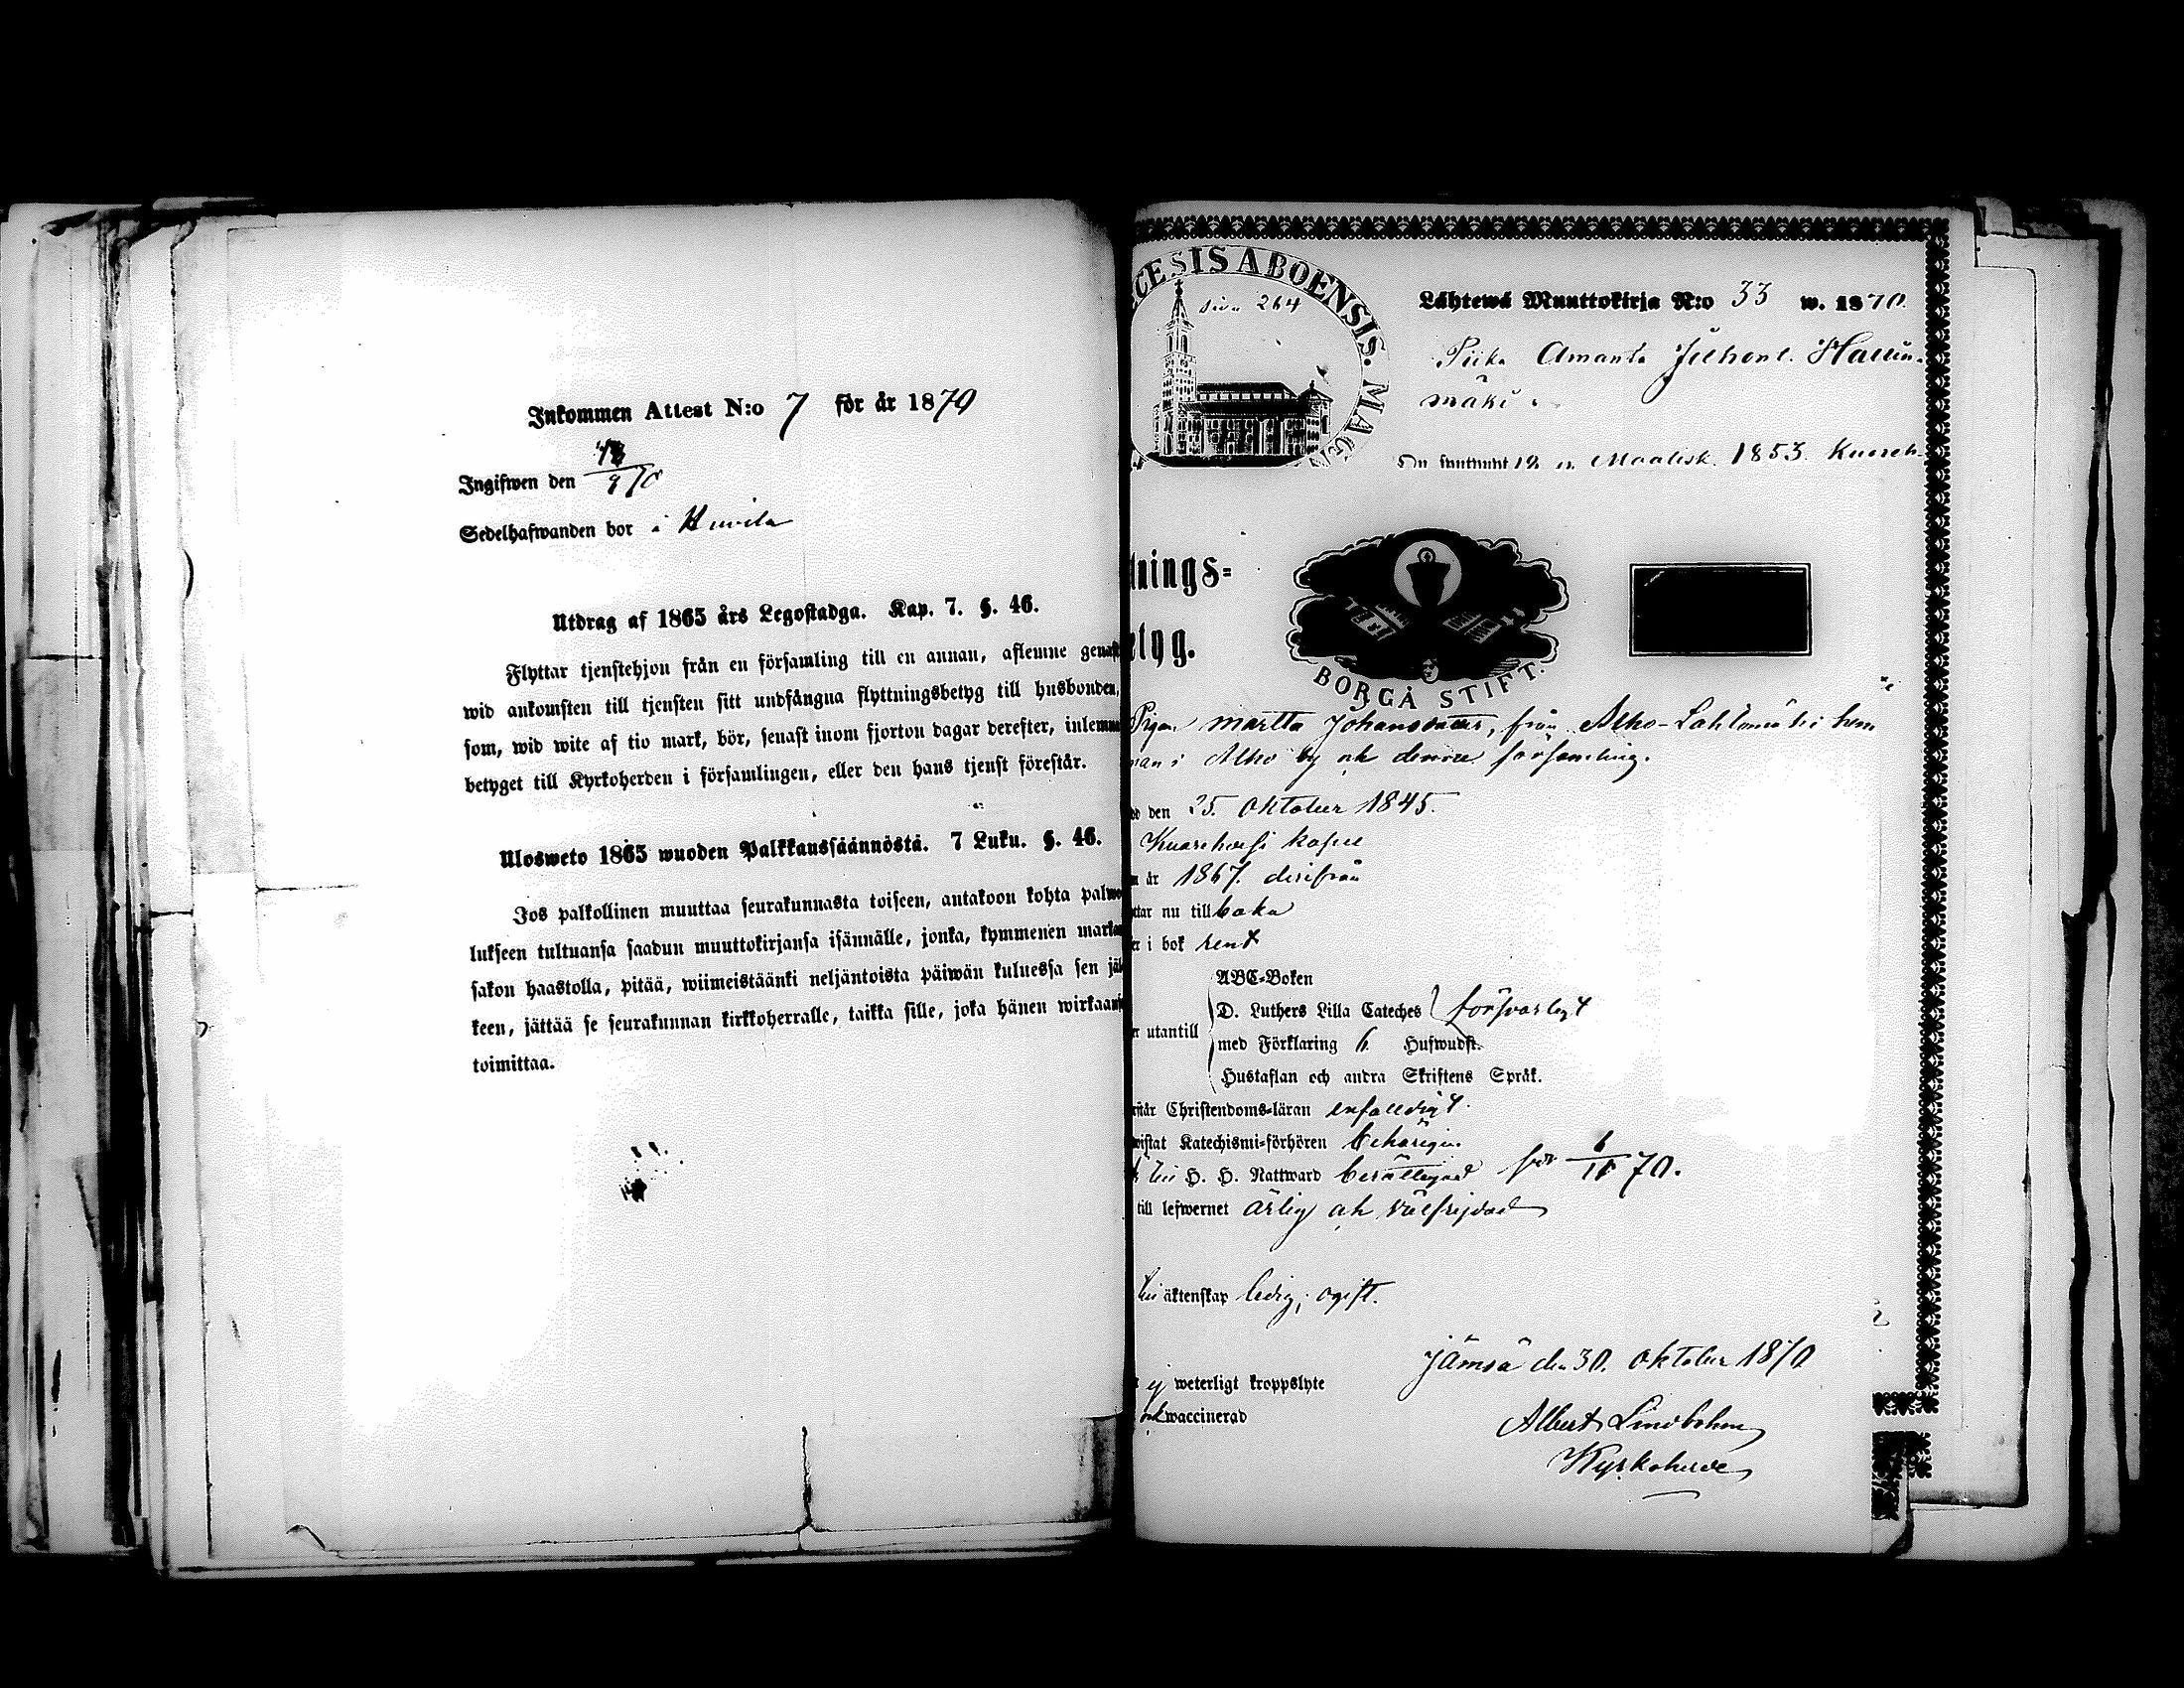 Inkommen Attest N:o 7 för år 1870
Ingifwen den
Sedelhafwanden bor i
Utdrag af 1865 års Legostadga. Kap. 7. §. 46.
Flyttar tjenstehjon från en församling till en annan, aflemne genast
wid ankomsten till tjensten sitt undfångna flyttningsbetyg till husbonden,
som, wid wite af tio mark, bör, senast inom fjorton dagar derefter, inlemna
betyget till Kyrkoherden i församlingen, eller den hans tjenst förestår.
Ulosweto 1865 wuoden Palkkaussäännöstä. 7 Luku. §. 46.
Jos palkollinen muuttaa seurakunnasta toiseen, antakoon kohta palwe
lukseen tultuansa saadun muuttokirjansa isännälle, jonka, kymmenen markan
sakon haastolla, pitää, wiimeistäänki neljäntoista päiwän kuluessa sen jäl
keen, jättää se seurakunnan kirkkoherralle, taikka sille, joka hänen wirkaansa
toimittaa.
CESIS ABOENSIS. MAG
siv. 264
Lähtewä Muuttokirja N:o 33 w. 1870.
Piika Amanta
mäki
on syntynyt 12 p. Maalisk. 1853. Kuoreh.
tnings=
etyg.
BORGÅ STIFT.
Pigan Martta Johansdotter, från Alho-Lahtomäki hem
man i Alho by och denna församling.
dd den 25. Oktober 1845.
Kuorehvesi kapell
år 1867. derifrån
ttar nu tillbaka
er i bok rent
ABC=Boken
D. Luthers Lilla Cateches försvarligt
er utantill
med Förklaring 6. Hufwudst.
Hustaflan och andra Skriftens Språk.
rstår Christendoms=läran enfaldigt.
wistat Katechismi=förhören behörigen.
till H. H. Nattward berättigad för 6/11 70.
till lefwernet ärlig och välfrejdad
till äktenskap ledig; ogift.
Jämsä den 30. Oktober 1870
ej weterligt kroppslyte
och waccinerad
Albert Lindbohm
Kyrkoherde